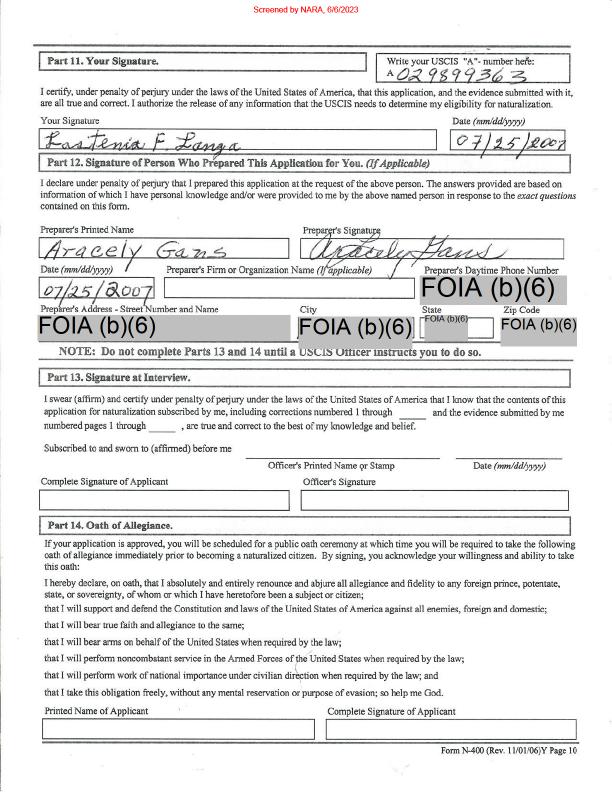 Screened by NARA, 6/6/2023
Part 11. Your Signature.
Write your USCIS "A"- number here:
A 029899363
I certify, under penalty of perjury under the laws of the United States of America, that this application, and the evidence submitted with it,
are all true and correct. I authorize the release of any information that the USCIS needs to determine my eligibility for naturalization.
Your Signature
Date (mm/dd/yyyy)
Lastenia F. Langa
07/25/2007
Part 12. Signature of Person Who Prepared This Application for You. (If Applicable)
I declare under penalty of perjury that I prepared this application at the request of the above person. The answers provided are based on
information of which I have personal knowledge and/or were provided to me by the above named person in response to the exact questions
contained on this form.
Preparer's Printed Name
Preparer's Signature
Aracely Gans
Aracely Gans
Date (mm/dd/yyyy)
Preparer's Firm or Organization Name (If applicable)
Preparer's Daytime Phone Number
07/25/2007
FOIA (b)(6)
Preparer's Address - Street Number and Name
City
State
Zip Code
FOIA (b)(6)
FOIA (b)(6)
FOIA (b)(6)
FOIA (b)(6)
NOTE: Do not complete Parts 13 and 14 until a USCIS Officer instructs you to do so.
Part 13. Signature at Interview.
I swear (affirm) and certify under penalty of perjury under the laws of the United States of America that I know that the contents of this
application for naturalization subscribed by me, including corrections numbered 1 through _____ and the evidence submitted by me
numbered pages 1 through _____ , are true and correct to the best of my knowledge and belief.
Subscribed to and sworn to (affirmed) before me
Officer's Printed Name or Stamp
Date (mm/dd/yyyy)
Complete Signature of Applicant
Officer's Signature
Part 14. Oath of Allegiance.
If your application is approved, you will be scheduled for a public oath ceremony at which time you will be required to take the following
oath of allegiance immediately prior to becoming a naturalized citizen. By signing, you acknowledge your willingness and ability to take
this oath:
I hereby declare, on oath, that I absolutely and entirely renounce and abjure all allegiance and fidelity to any foreign prince, potentate,
state, or sovereignty, of whom or which I have heretofore been a subject or citizen;
that I will support and defend the Constitution and laws of the United States of America against all enemies, foreign and domestic;
that I will bear true faith and allegiance to the same;
that I will bear arms on behalf of the United States when required by the law;
that I will perform noncombatant service in the Armed Forces of the United States when required by the law;
that I will perform work of national importance under civilian direction when required by the law; and
that I take this obligation freely, without any mental reservation or purpose of evasion; so help me God.
Printed Name of Applicant
Complete Signature of Applicant
Form N-400 (Rev. 11/01/06)Y Page 10